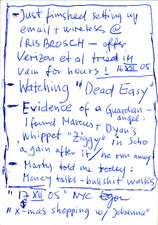 - Just finished setting up
email + wireless @
IRIS BROSCH - after
Verizon et al tried in
vain for hours! 16 XII 05
- Watching "Dead Easy"
- Evidence of a Guardian-
angel:
I found Marcus + Dyan's
whippet "Ziggy" in Soho
again after it he ran away!
- Marty told me today:
Money talks - bullshit walks
"17 XII 05" NYC
"x-mas shopping w/ Johanna"